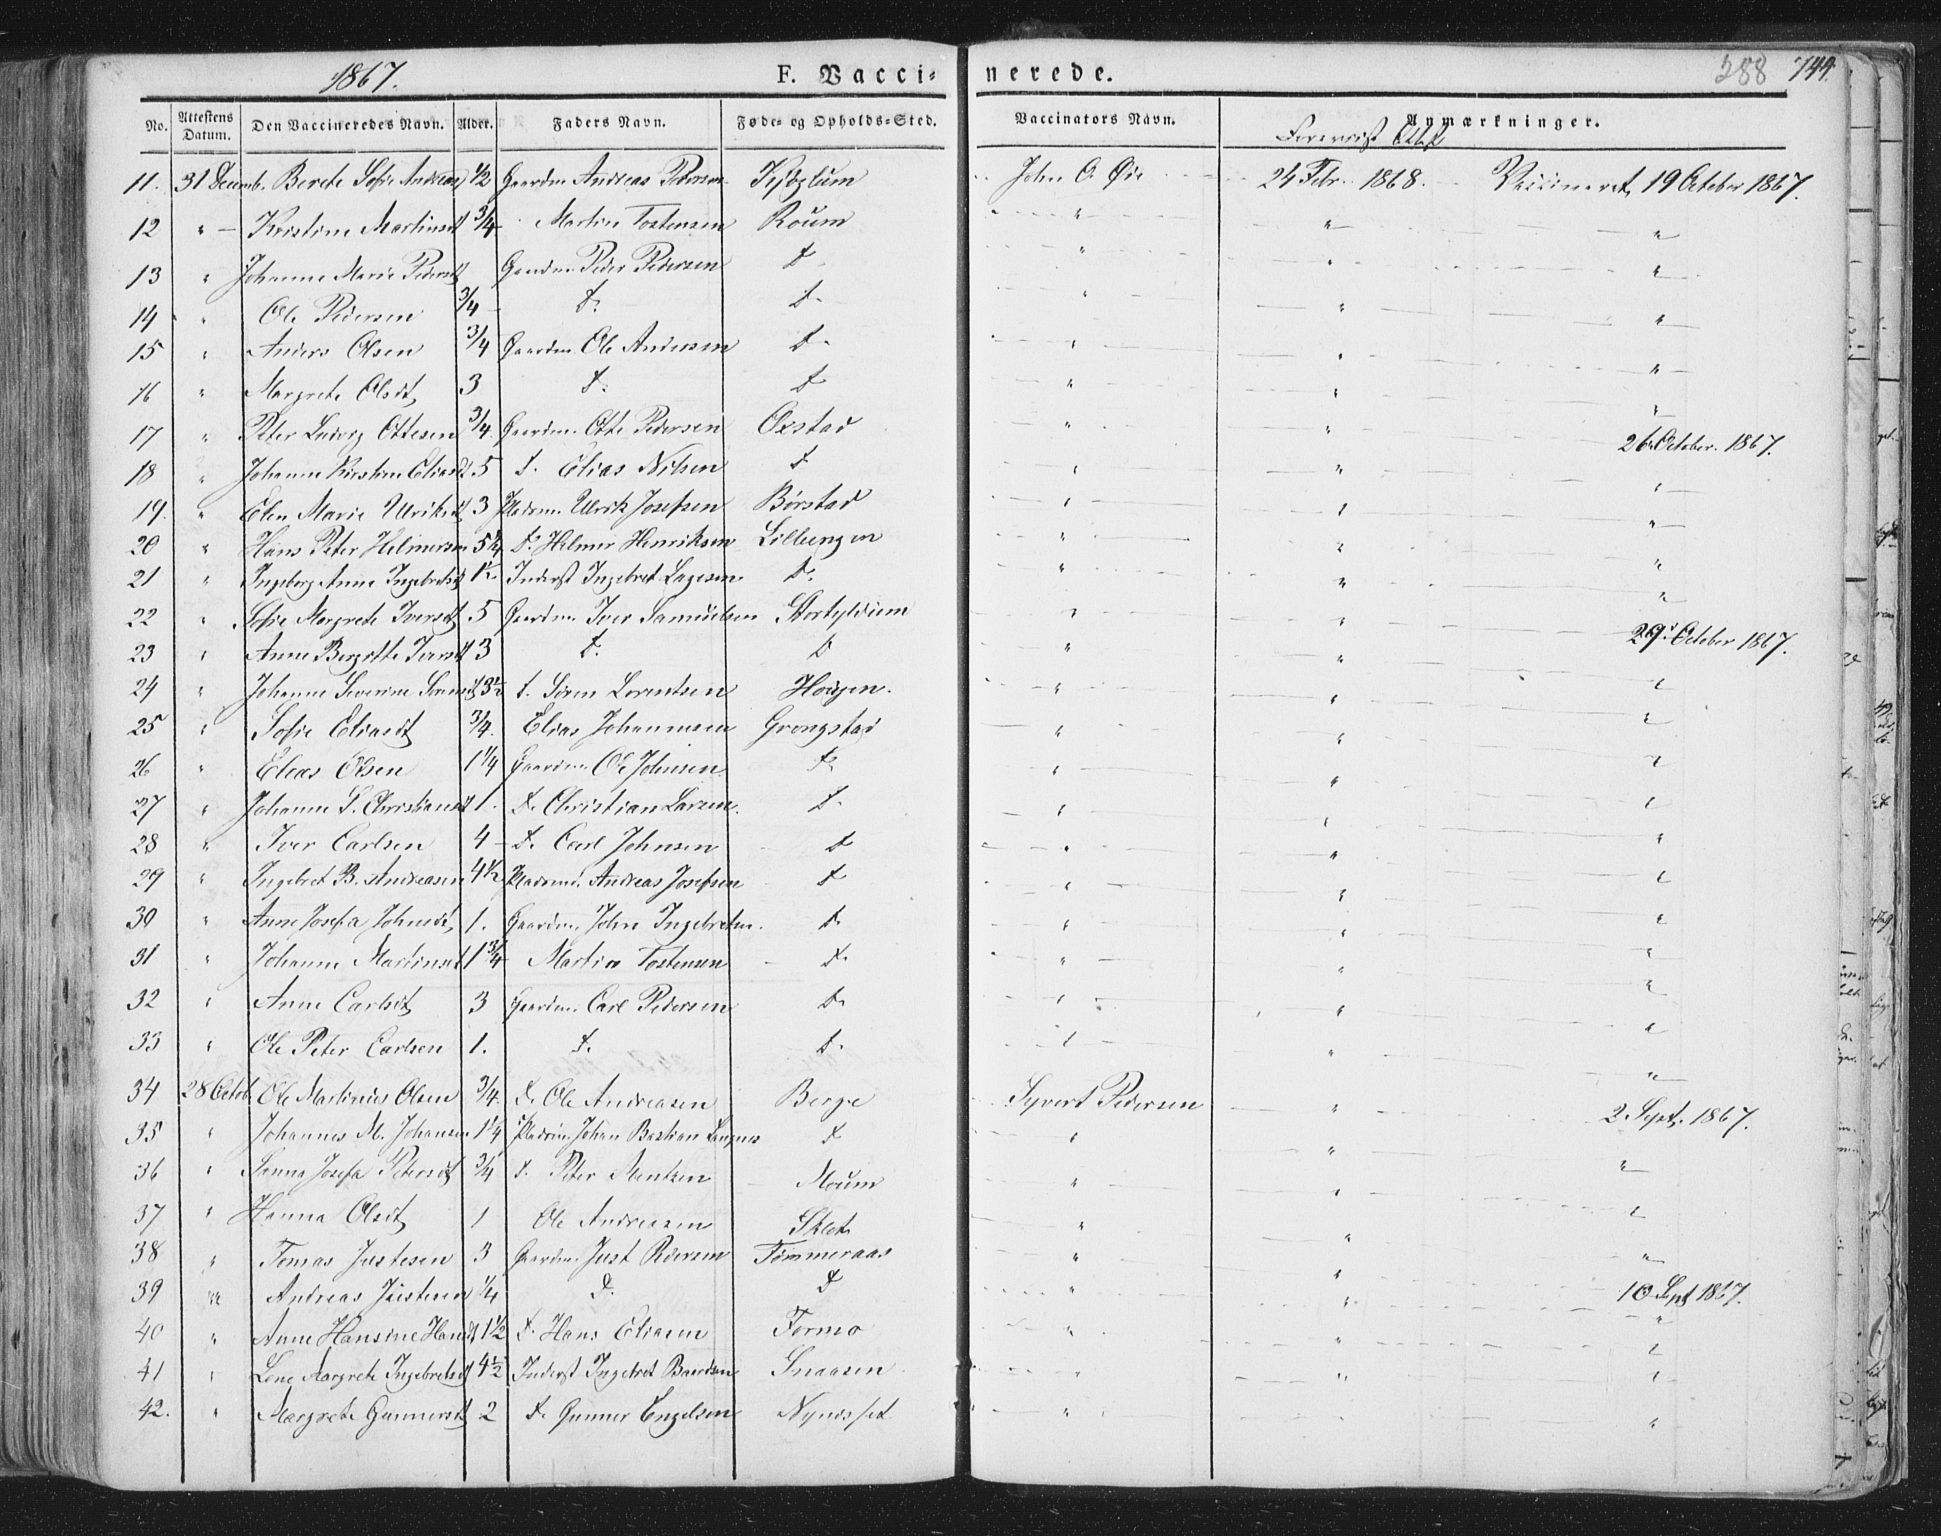 1867. F. Vacci- nerede. 388 744.
No. Attestens Datum. Den Vaccineredes Navn. Alder. Faders Navn. Føde- og Opholds-Sted. Vaccinators Navn. Anmærkninger.
Forevist Attest
11. 31 Decemb. Berete Sofie Andreasd 1/2 Gaardm. Andreas Pedersen John O. Øie 24 Febr. 1868. Vaccineret 19 October 1867.
12 " Kristine Martinsdt 3/4 Martin Tostensen Roum " " "
13 " Johanne Marie Pedersdt Gaardm. Peder Pedersen D " " "
14 " Ole Pedersen 3/4 D. D. " " "
15 " Anders Olsen 3/4 Gaardm. Ole Andersen D. " " "
16 " Margrete Olsdt 3 D. D " " "
17 " Peter Ludvig Ottesen 3/4 Gaardm. Otte Pedersen Oxstad " " 26 October. 1867.
18 " Johanne Kirstine Eliasdt 5 D. Elias Nilsen D " " "
19. " Elen Marie Ulriksdt 3 Pladsm. Ulrik Josefsen Børstad " " "
20 " Hans Peter Helmersen 5 1/4 D. Helmer Henriksen " " "
21 " Ingeborg Anna Ingebretsdt 1/2 Inderst Ingebret Lagesen D. " " "
22 " Sofie Margrete Iversdt 5 Gaardm. Iver Samuelsen " " 29 October 1867.
23 " Anne Bergitte Iversdt 3 D. D " " "
24 " Johanne Severine Sørensdt 3 1/2 D. Søren Lorentsen Hougen. " " "
25 " Sofie Eliasdt 3/4. Elias Johannesen Grongstad " " "
26 " Elias Olsen 1 1/4 Gaardm. Ole Johnsen D. " " "
27 " Johanne S. Christiansdt 1. D. Christian Larsen. D. " " "
28 " Iver Carlsen 4 D. Carl Johnsen D " " "
29 " Ingebret B. Andreasen 4 1/2 Pladsmd. Andreas Josefsen D " " "
30 " Anne Josefa Johnsdt 1. Gaardm. John Ingebretsen. D. " " "
31 " Johanne Martinsdt 1 3/4 Martin Tostensen D. " " "
32 " Anne Carlsdt 3 Gaardm. Carl Pedersen D. " " "
33 " Ole Peter Carlsen 1. D. D. " " "
34 28 Octob. Ole Martinus Olsen 3/4. D. Ole Andreasen Berge Syvert Pedersen " 2 Sept. 1867.
35 " Johannes M. Johansen 1 1/4 Pladsm. Johan Bastian D " " "
36 " Josefa Petersdt 3/4 D. Peter Mentsen Moum " " "
37 " Hanna Olsdt 1 Ole Andreasen " " "
38 " Tomas Justesen 3 Gaardm. Just Pedersen Tømmeraas " " "
39 " Andreas Justesen 1/4 D. D " " 10 Sept 1867.
40 " Anne Hansine Hansdt 1 1/2 D. Hans Eliasen Formo " " "
41 " Lene Margrete Ingebretsdt 4 1/2 Inderst Ingebret Baardsen Snaasen " " "
42. " Margrete Gunnersdt 2 D. Gunner Engelsen " "